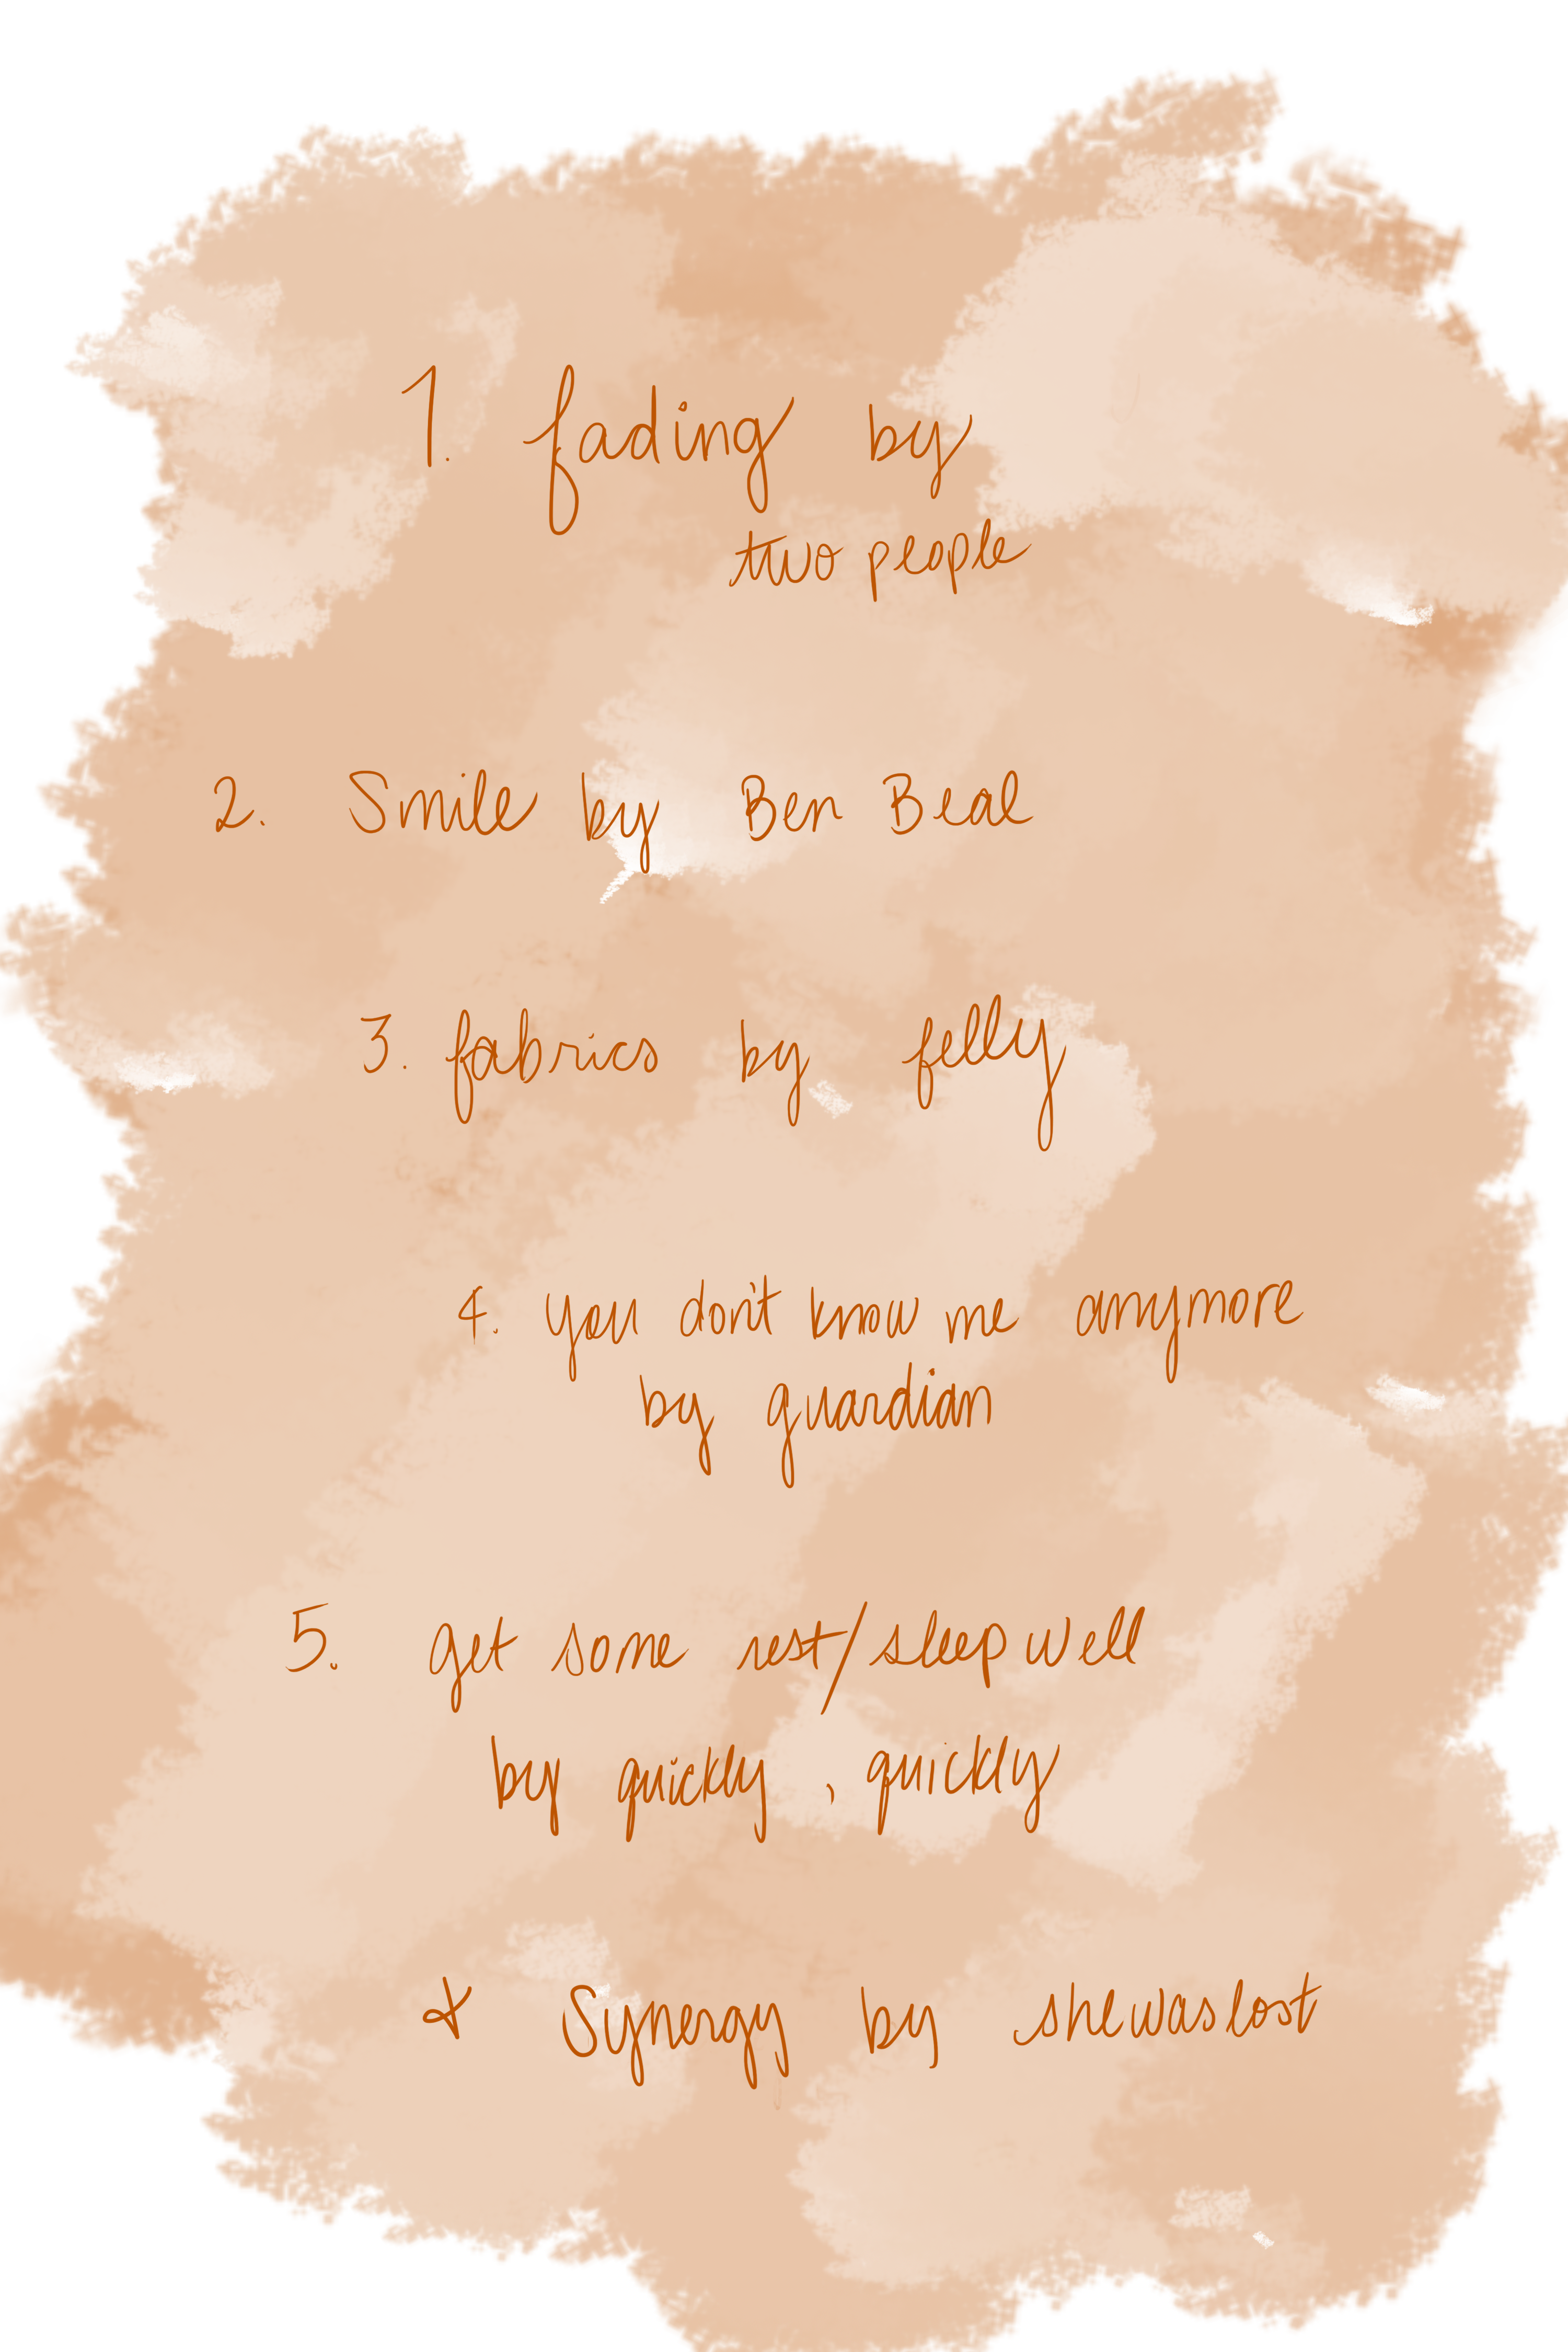 1. fading by
two people
2. Smile by Ben Beal
3. fabrics by felly
4. you don't know me anymore
by guardian
5. get some rest/sleep well
by quickly, quickly
& Synergy by shewaslost